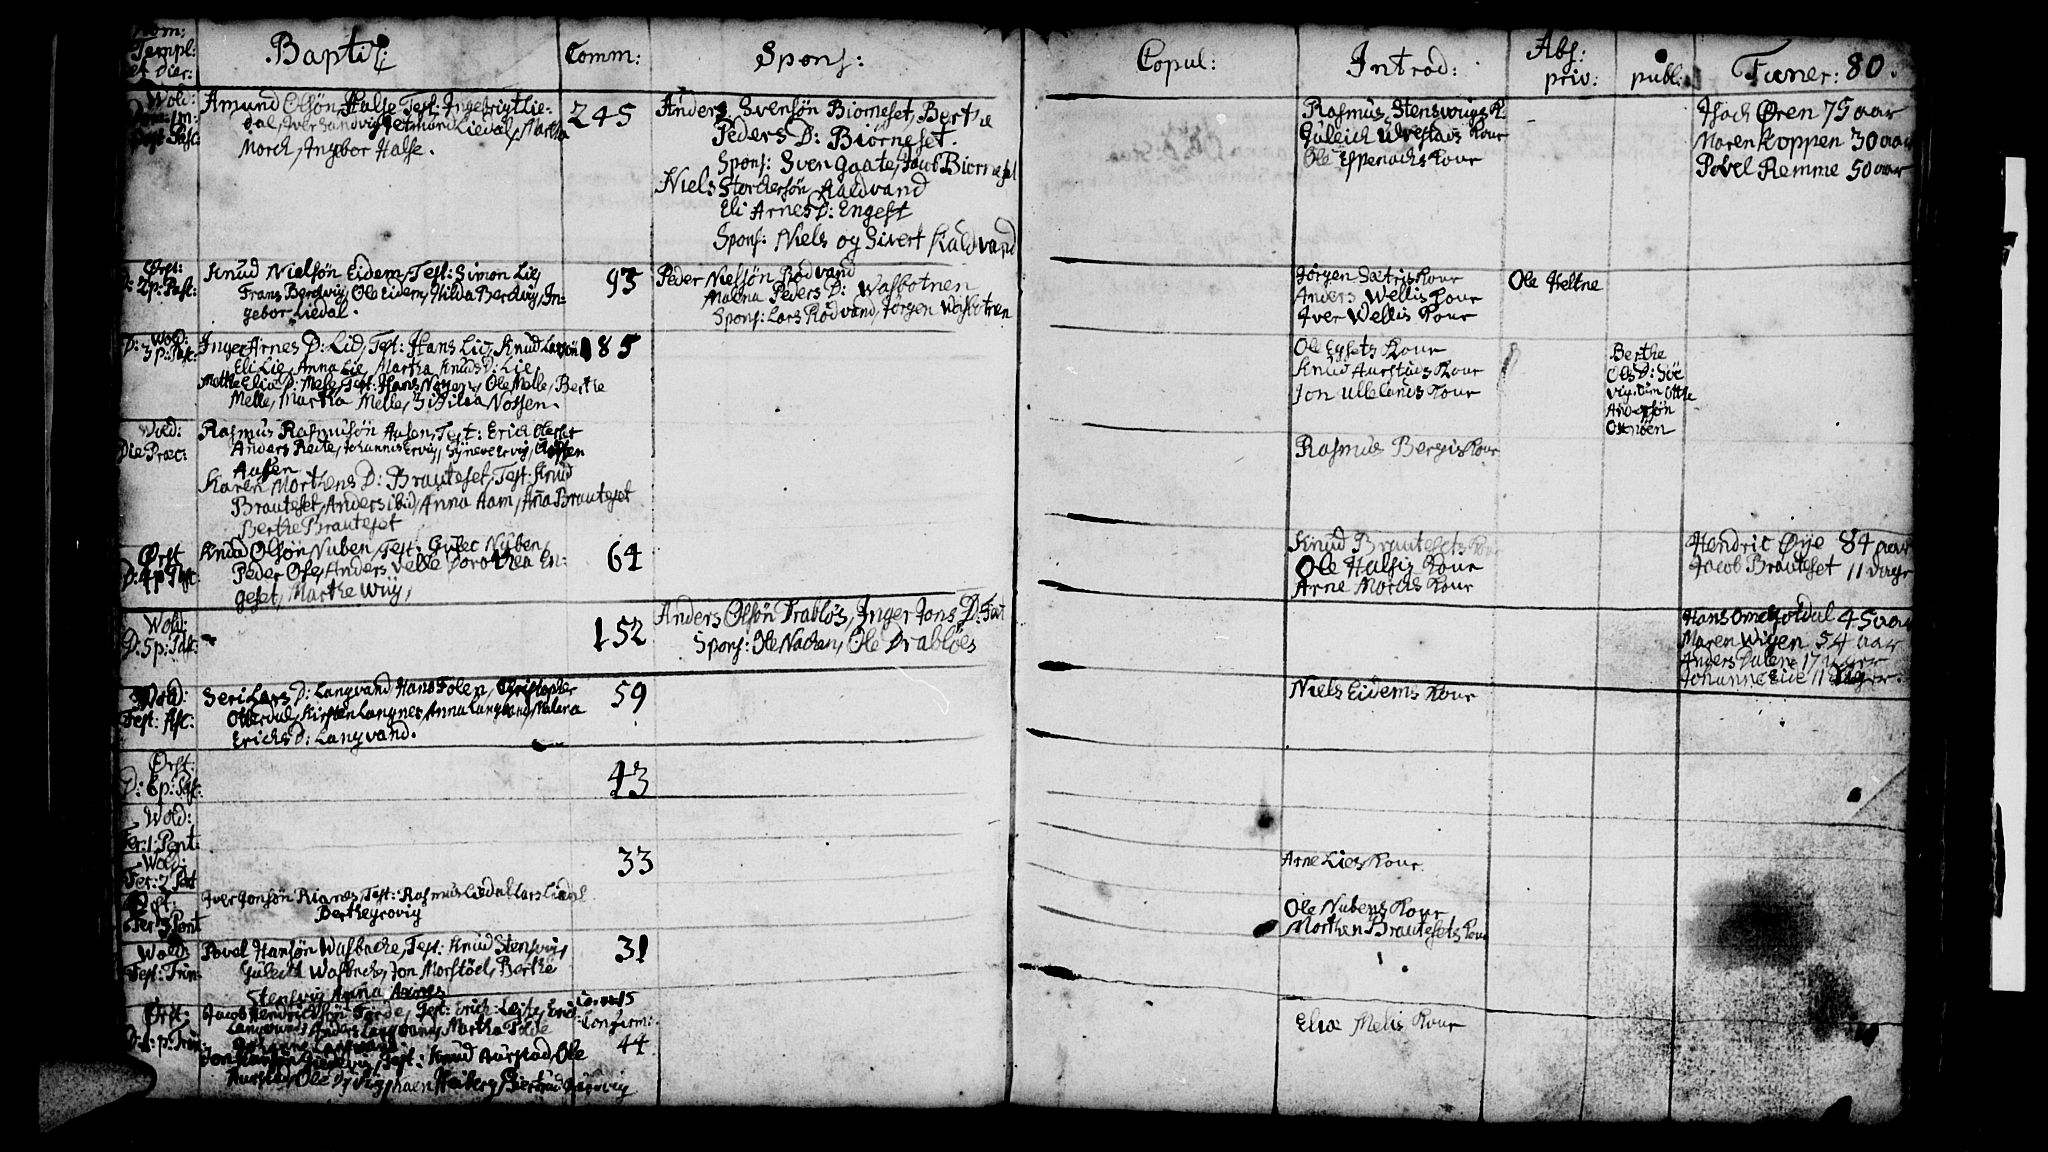 Nom:
Templ:
et dier:
Baptiz:
Comm:
Spons:
Copul:
Introd:
Abs:
priv:
publ:
Funer: 80.
Wold:
Dom: 1 m:
Post Pasc:
Amund Olsøn Halse, Test: Ingebrigt Lie-
dal, Iver Sandvig, Aetmund Liedal, Martha
Morch, Ingebor Halse.
245
Anders Svensøn Biorneset, Berthe
Peders D: Biørneset.
Spons: Sven Gaate, Jacob Biorneset
Niels Storchersøn Kaldvand
Eli Arnes D: Engeset
Spons: Niels og Sivert Kaldvand
Rasmus Stensvigs K.
Guleich Ulvestads Kone
Ole Espenachs Kone
Isach Øren 75 aar
Maren Koppen 30 aar
Povel Remme 50 aar
Ørst:
D: 2 p: Pasc:
Knud Nielsøn Eidem, Test: Simon Lie,
Frans Berdvig, Ole Eidem, Hilda Berdvig, In-
gebor Liedal.
93
Peder Nielsøn Rødvand
Malena Peders D: Wasbotnen
Spons: Lars Rødvand, Jørgen Wasbotnen
Jørgen Sætris Kone
Anders Wellis Kone
Iver Wellis Kone
Ole Heltne
Wold:
D: 3 p: Pasc:
Inger Arnes D: Lid, Test: Hans Lid, Knud Larsøn
Eli Lie, Anna Lie, Martha Knuds D: Lie,
Mette Eliæ D: Mele, Test: Hans Nøyen, Ole Melle, Berthe
Melle, Martha Melle, Sitzilia Nossen.
185
Ole Eysets Kone
Knud Aurstads Kone
Jon Ullelands Kone
Berthe
Ols D: Søe
vigium Otthe
Andersøn
Osnøen
Wold:
Die Præc:
Rasmus Rasmusøn Aasen, Test: Erich
Anders Reite, Johannis Ervig, Synneve Ervig,
Aasen
Karen Morthens D: Brauteset, Test: Knud
Brauteset, Anders ibid, Anna Aam, Aña Brauteset
Berthe Brauteset
Rasmus Bergis Kone
Ørst
D: 4 p: Pasc:
Knud Olsøn Nuben, Test: Gulec Nuben,
Peder Ose, Anders Velle Dorothea En:
geset, Marthe Wiig,
64
Knud Brautesets Kone
Ole Halsis Kone
Arne Morchs Kone
Hendric Øye 84 aar
Jacob Brauteset 11 dage
Wold:
D: 5 p: Pasc:
152
Anders Olsøn Drabløs, Inger Jons D:
Spons: Ole Nachen, Ole Drabløes
Hans Omeholdal 45 aar
Maren Wigen 54 aar
Anders Dalene 17 Uger
Johanne Lie 11 Uger.
Wold:
Fest: Asc:
Seri Lars D: Langvand Hans Folen, Christopher
Otterdal, Kirsten Langnes, Anna Langvand, Malena
Erichs D: Langvand.
59
Niels Eidems Kone
Ørst:
D: 6 p: Pasc:
43
Wold:
Fer: 1: Pent:
Wold:
Fer: 2 Pent
33
Arne Lies Kone
Ørst:
Fer: 3 Pent
Iver Jonsøn Rianes, Test: Rasmus Liedal Lars Liedal
Berthe Grovig
Ole Nubens Kone
Morthen Brautesets Kone
Wold:
Fest: Trin:
Povel Hansøn Wasbache, Test: Knud Stensvig,
Guleich Wasbach, Jon Morstøel, Berthe
Stensvig Anna Aarnes
31
Ørst:
D: 1: p: Trin:
Jacob Hendrichsøn Førde, Test: Erich Leite, Erich
Langvand, Anders Langvand, Martha Folde
Johanne Langvand.
Test: Knud Aurstad, Ole
Aurstad, Ole
Comm: 15
Confirm:
44
Eliæ Melis Kone